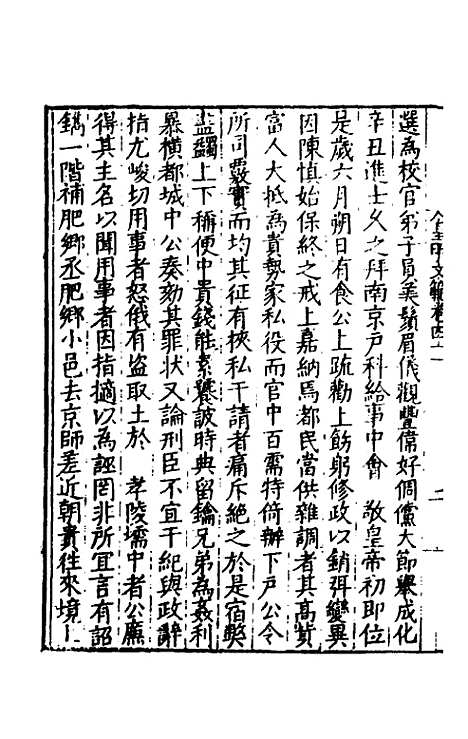 選為校官弟子員美鬚眉儀觀豐偉好倜儻大節舉成化
辛丑進士久之拜南京戶科給事中會 敬皇帝初即位
是歲六月朔日有食公上疏勸上飭躬修政以銷弭變異
因陳慎始保終之戒上嘉納焉都民當供雜調者其高貲
富人大抵為貴勢家私役而官中百需特倚辦下戶公令
所司覈實而均其征有挾私干請者痛斥絕之於是宿弊
盡蠲上下稱便中貴錢能素饕詖時典留鑰兄弟為姦利
暴橫都城中公奏劾其罪狀又論刑臣不宜干紀與政辭
指尤峻切用事者怒俄有盜取土於 孝陵壖中者公廉
得其主名以聞用事者因指摘以為誣罔非所宜言有詔
鐫一階補肥鄉丞肥鄉小邑去京師差近朝貴往來境上
二